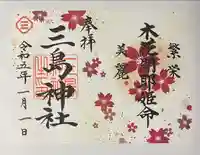 繁栄
木花開耶姫命
美麗
奉拝
三島神社
令和五年一月一日